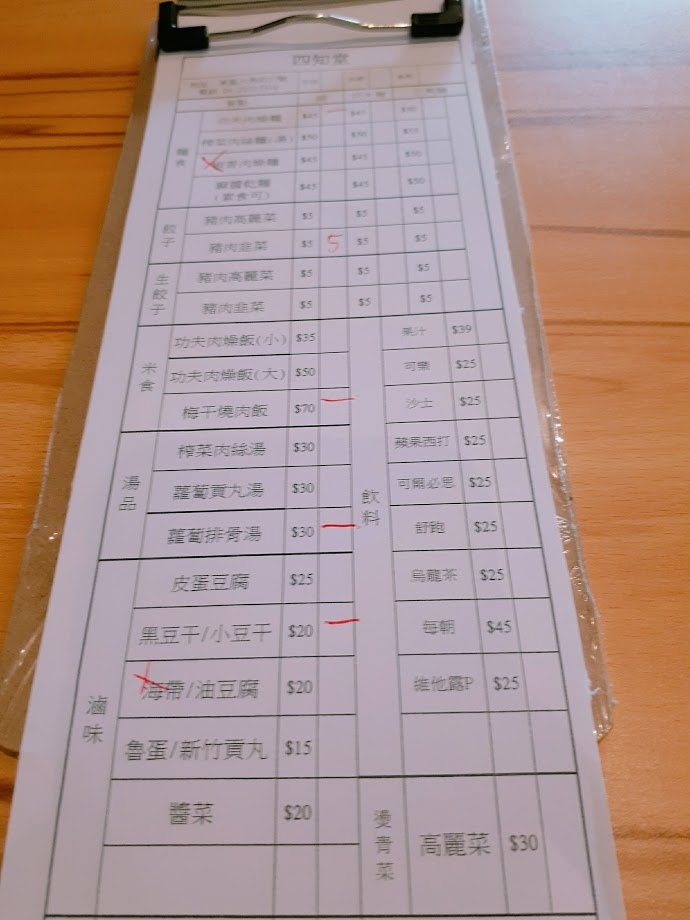 四知堂
麵食
功夫肉燥麵 $45 $45 $50
榨菜肉絲麵(湯) $50 $50 $55
肉燥麵 $45 $45 $50
麻醬乾麵 $45 $45 $50
(素食可)
餃子
豬肉高麗菜 $5 $5 $5
豬肉韭菜 $5 5 $5 $5
生餃子
豬肉高麗菜 $5 $5 $5
豬肉韭菜 $5 $5 $5
米食
功夫肉燥飯(小) $35
功夫肉燥飯(大) $50
梅干燒肉飯 $70
湯品
榨菜肉絲湯 $30
蘿蔔貢丸湯 $30
蘿蔔排骨湯 $30
滷味
皮蛋豆腐 $25
黑豆干/小豆干 $20
海帶/油豆腐 $20
魯蛋/新竹貢丸 $15
醬菜 $20
飲料
果汁 $39
可樂 $25
沙士 $25
蘋果西打 $25
可爾必思 $25
舒跑 $25
烏龍茶 $25
每朝 $45
維他露P $25
燙青菜
高麗菜 $30